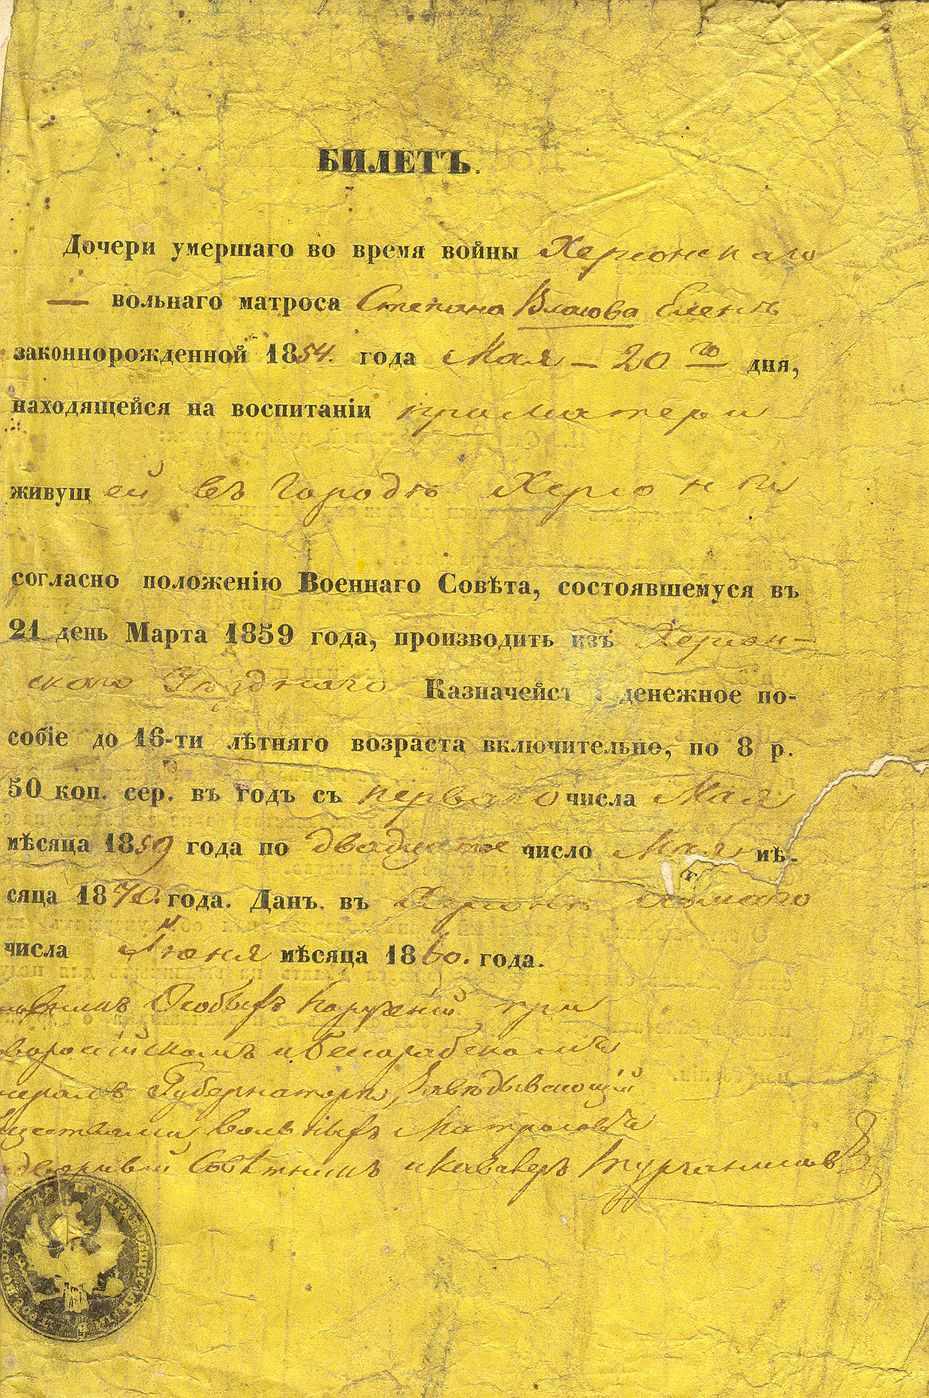 БИЛЕТЪ.
Дочери умершаго во время войны Херсонскаго
— вольнаго матроса Степана Власова Еленѣ
законнорожденной 1854. года Мая — 20 го дня,
находящейся на воспитаніи при матери
живущей въ городѣ Херсонѣ
согласно положенію Военнаго Совѣта, состоявшемуся въ
21 день Марта 1859 года, производить изъ Херсон-
скаго Уѣзднаго Казначейст денежное по-
собіе до 16-ти лѣтняго возраста включительно, по 8 р.
50 коп. сер. въ годъ съ перваго числа Мая
мѣсяца 1859 года по двадцатое число Мая мѣ-
сяца 1870. года. Данъ въ Херсонѣ
числа Іюня мѣсяца 1860. года.
Особыхъ Порученій при
вороссійскомъ и Бессарабскомъ
нералъ Губернаторѣ, Завѣдывающій
ществами вольныхъ Матросовъ
дворный Совѣтникъ и Кавалеръ